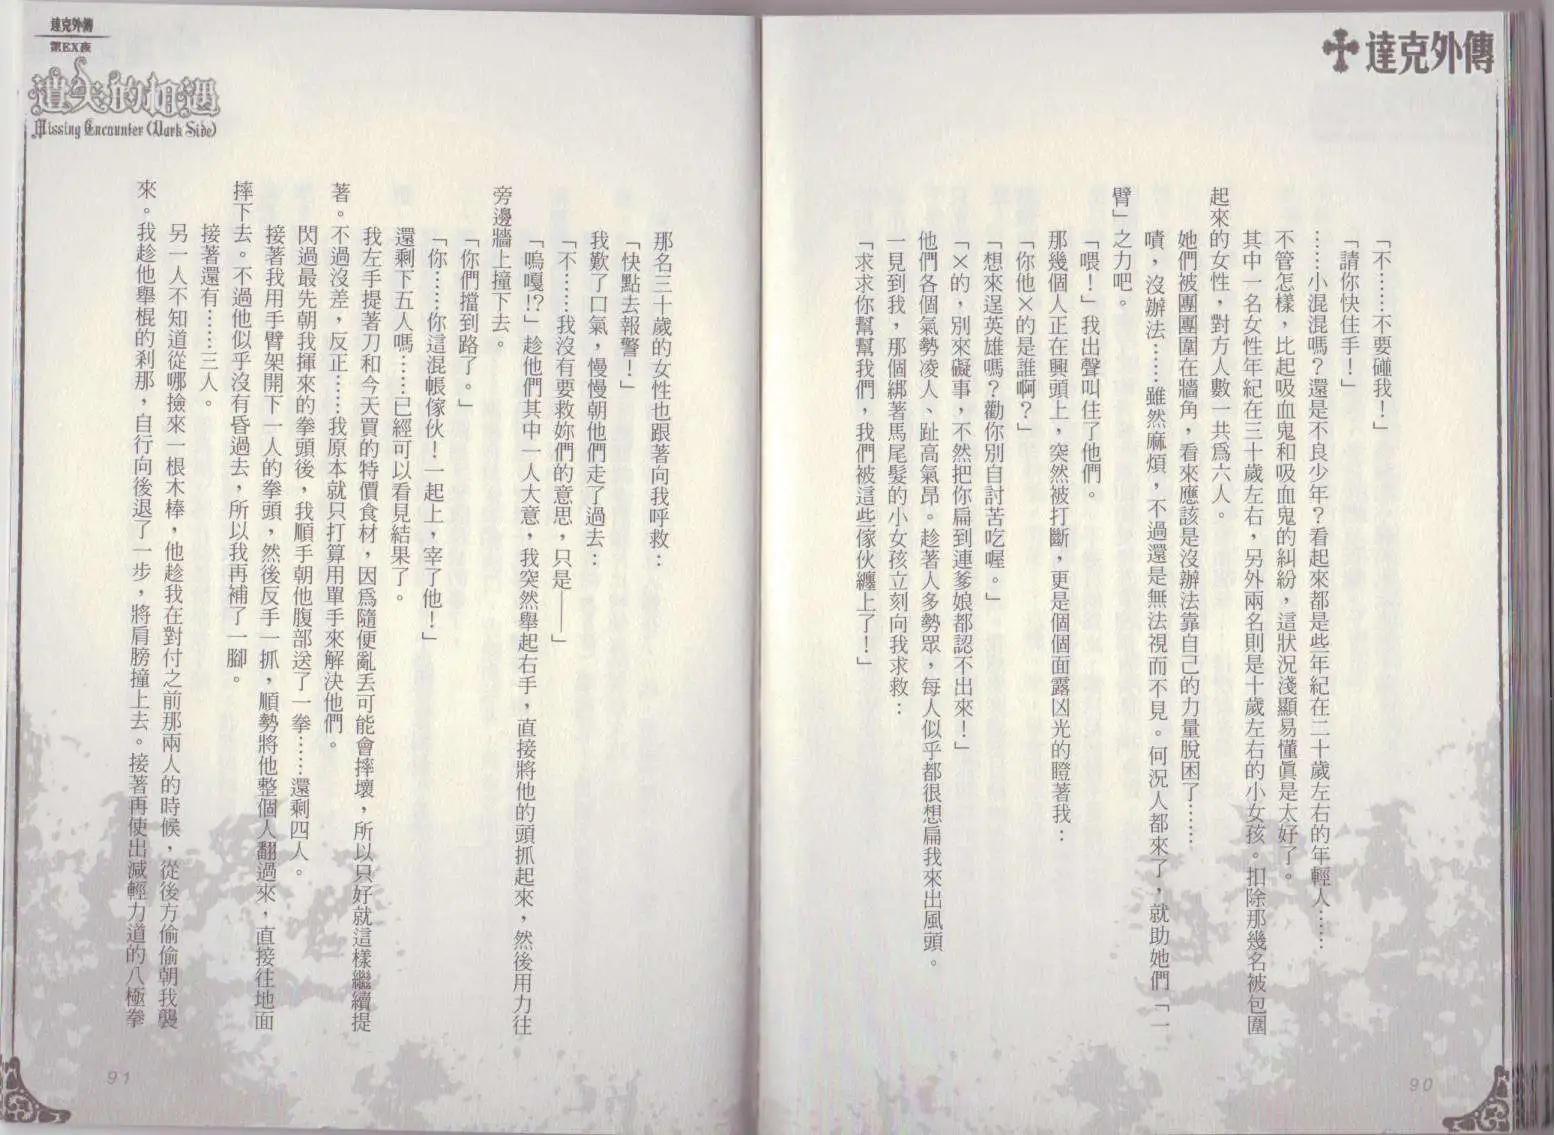 達克外傳
「不……不要碰我！」
「請你快住手！」
……小混混嗎？還是不良少年？看起來都是些年紀在二十歲左右的年輕人……
不管怎樣，比起吸血鬼和吸血鬼的糾紛，這狀況淺顯易懂真是太好了。
其中一名女性年紀在三十歲左右，另外兩名則是十歲左右的小女孩。扣除那幾名被包圍
起來的女性，對方人數一共爲六人。
她們被團團圍在牆角，看來應該是沒辦法靠自己的力量脫困了……
嘖，沒辦法……雖然麻煩，不過還是無法視而不見。何況人都來了，就助她們「一
臂」之力吧。
「喂！」我出聲叫住了他們。
那幾個人正在興頭上，突然被打斷，更是個個面露凶光的瞪著我：
「你他×的是誰啊？」
「想來逞英雄嗎？勸你別自討苦吃喔。」
「×的，別來礙事，不然把你扁到連爹娘都認不出來！」
他們各個氣勢凌人、趾高氣昂。趁著人多勢眾，每人似乎都很想扁我來出風頭。
一見到我，那個綁著馬尾髮的小女孩立刻向我求救：
「求求你幫幫我們，我們被這些傢伙纏上了！」
90
達克外傳
第EX夜
遺失的相遇
Missing Encounter (Dark Side)
那名三十歲的女性也跟著向我呼救：
「快點去報警！」
我歎了口氣，慢慢朝他們走了過去：
「不……我沒有要救妳們的意思，只是——」
「嗚嘎!?」趁他們其中一人大意，我突然舉起右手，直接將他的頭抓起來，然後用力往
旁邊牆上撞下去。
「你們擋到路了。」
「你……你這混帳傢伙！一起上，宰了他！」
還剩下五人嗎……已經可以看見結果了。
我左手提著刀和今天買的特價食材，因爲隨便亂丟可能會摔壞，所以只好就這樣繼續提
著。不過沒差，反正……我原本就只打算用單手來解決他們。
閃過最先朝我揮來的拳頭後，我順手朝他腹部送了一拳……還剩四人。
接著我用手臂架開下一人的拳頭，然後反手一抓，順勢將他整個人翻過來，直接往地面
摔下去。不過他似乎沒有昏過去，所以我再補了一腳。
接著還有……三人。
另一人不知道從哪撿來一根木棒，他趁我在對付之前那兩人的時候，從後方偷偷朝我襲
來。我趁他舉棍的剎那，自行向後退了一步，將肩膀撞上去。接著再使出減輕力道的八極拳
91